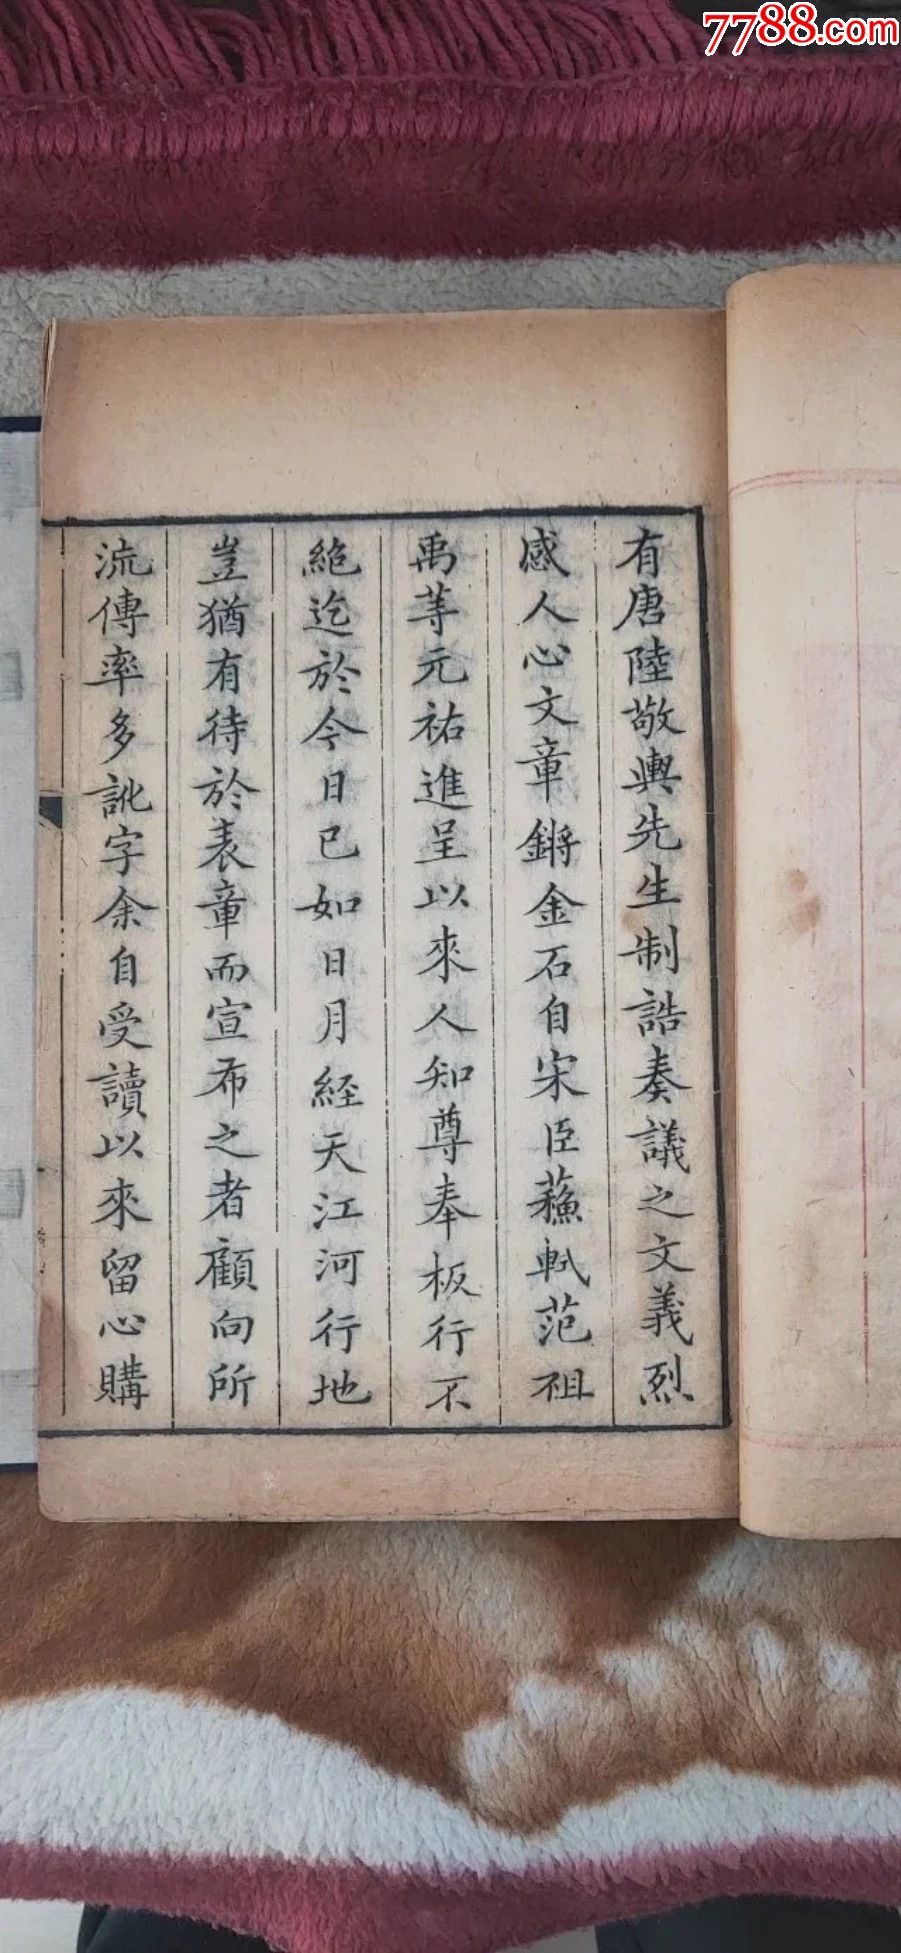 7788.com
有唐陸敬輿先生制誥奏議之文義烈
感人心文章鏘金石自宋臣蘓軾范祖
禹等元祐進呈以來人知尊奉板行不
絶迄於今日已如日月經天江河行地
豈猶有待於表章而宣布之者顧向所
流傳率多訛字余自受讀以來留心購